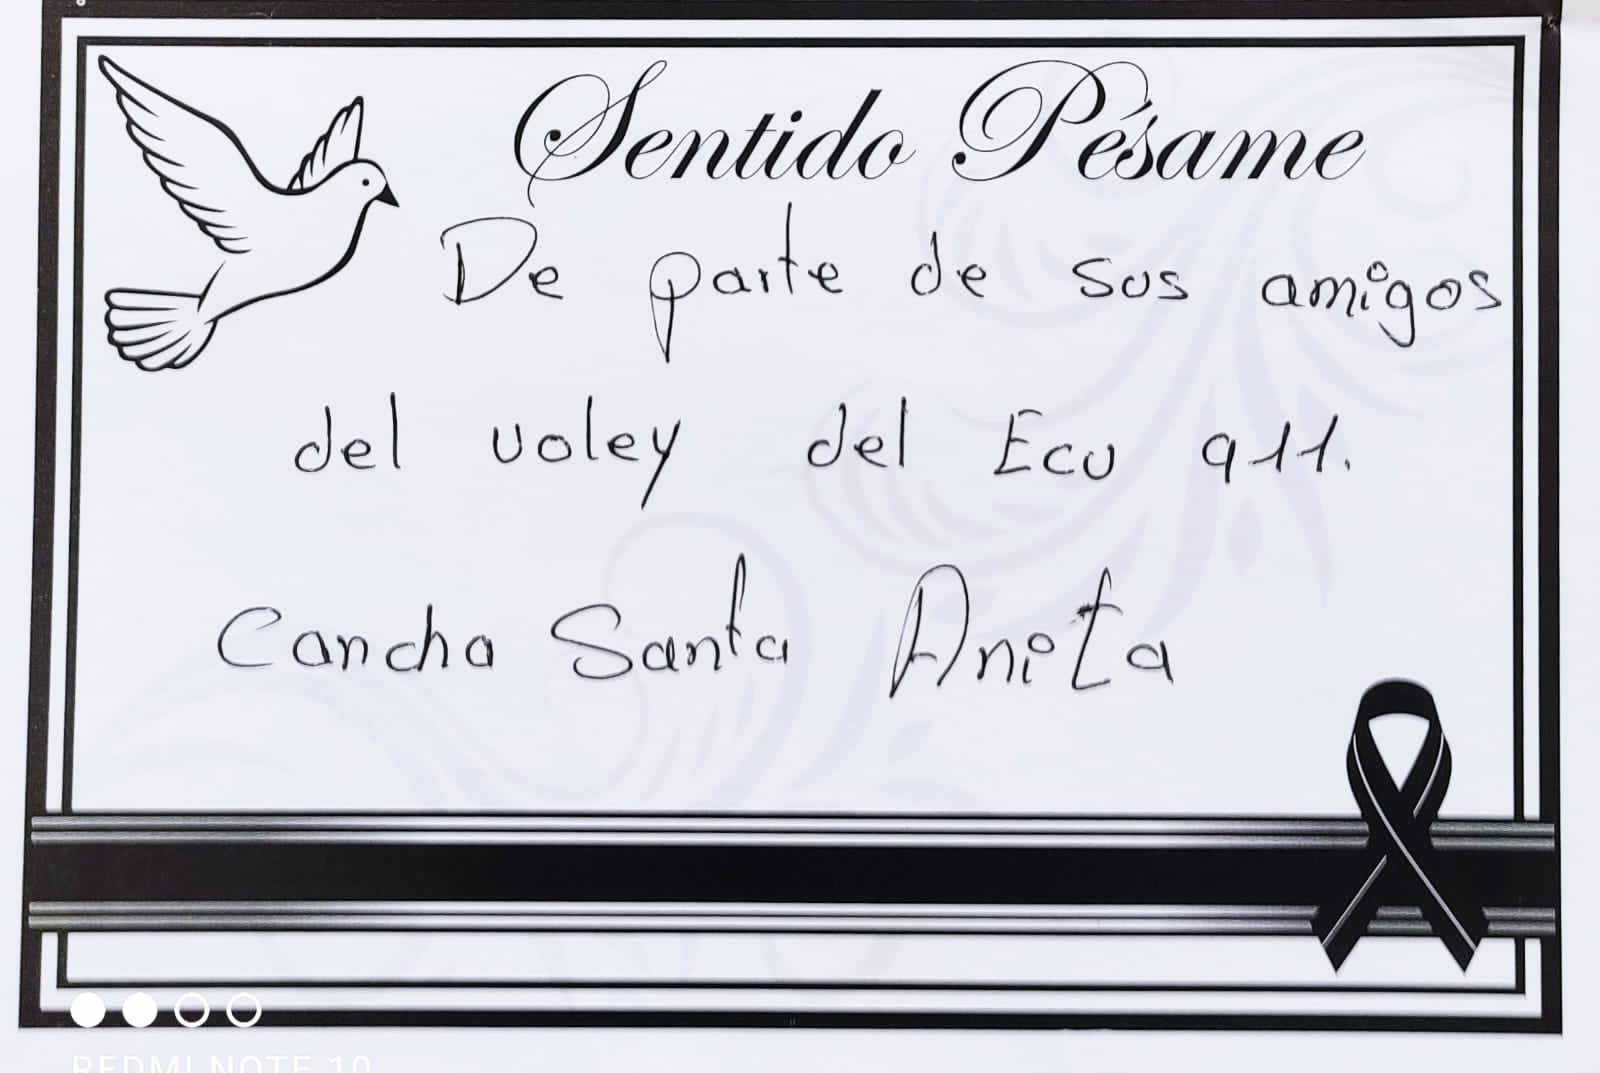 Sentido Pésame
De parte de sus amigos
del voley del Ecu 911.
Cancha Santa Anita
REDMI NOTE 10